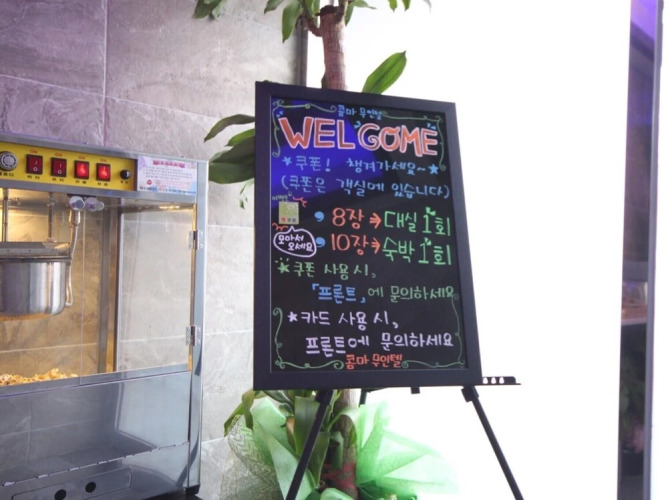 콤마 무인텔
WELCOME
★쿠폰! 챙겨가세요~★
(쿠폰은 객실에 있습니다)
8장→대실 1회
모아서 오세요
10장→숙박 1회
★쿠폰 사용 시,
「프론트」에 문의하세요
★카드 사용 시,
프론트에 문의하세요
콤마 무인텔